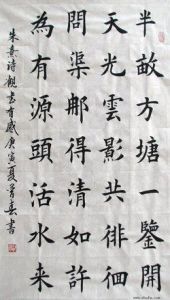 半畝方塘一鑒開
天光雲影共徘徊
問渠郍得清如許
為有源頭活水来
朱熹诗觀书有感庚寅夏春書